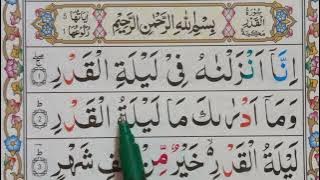 سُورَةُ الْقَدْرِ مَكِّيَّةٌ
بِسْمِ اللّٰهِ الرَّحْمٰنِ الرَّحِيْمِ
اٰيَاتُهَا ٥ رُكُوْعُهَا ١
اِنَّاۤ اَنْزَلْنٰهُ فِىْ لَيْلَةِ الْقَدْرِ ۚ ١
وَمَاۤ اَدْرٰىكَ مَا لَيْلَةُ الْقَدْرِ ؕ ٢
لَيْلَةُ الْقَدْرِ ۙ خَيْرٌ مِّنْ اَلْفِ شَهْرٍ ؕ ٣